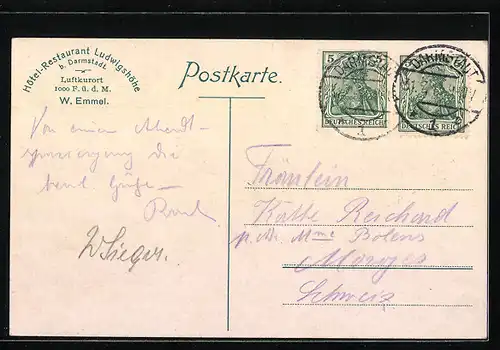 Hôtel-Restaurant Ludwigshöhe
b. Darmstadt.
Luftkurort
1000 F. ü. d. M.
W. Emmel.
Postkarte.
5
DEUTSCHES REICH
DEUTSCHES REICH
DARMSTADT
DARMSTADT
Von einem Abend-
die
Grüße –
W Sieger.
Fräulein
Käthe Reichard
Mme Bolens
Morges
Schweiz